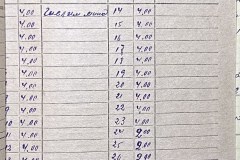 4,00 14 4,00
4,00 15 4,00
4,00 16 4,00
4,00 17 4,00
4,00 18 4,00
4,00 19 4,00
4,00 20 4,00
4,00 21 4,00
4,00 22 4,00
10 4,00 23 4,00
11 4,00 24 9,00
12 4,00 25 9,00
4,00 26 9,00